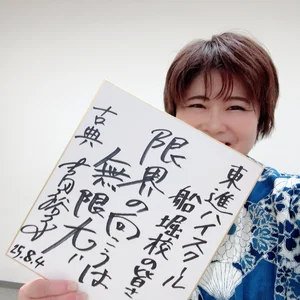 東進ハイスクール
船堀校の皆さま
限界の向こうは
無限大!!
古典
吉田裕子
25.8.4